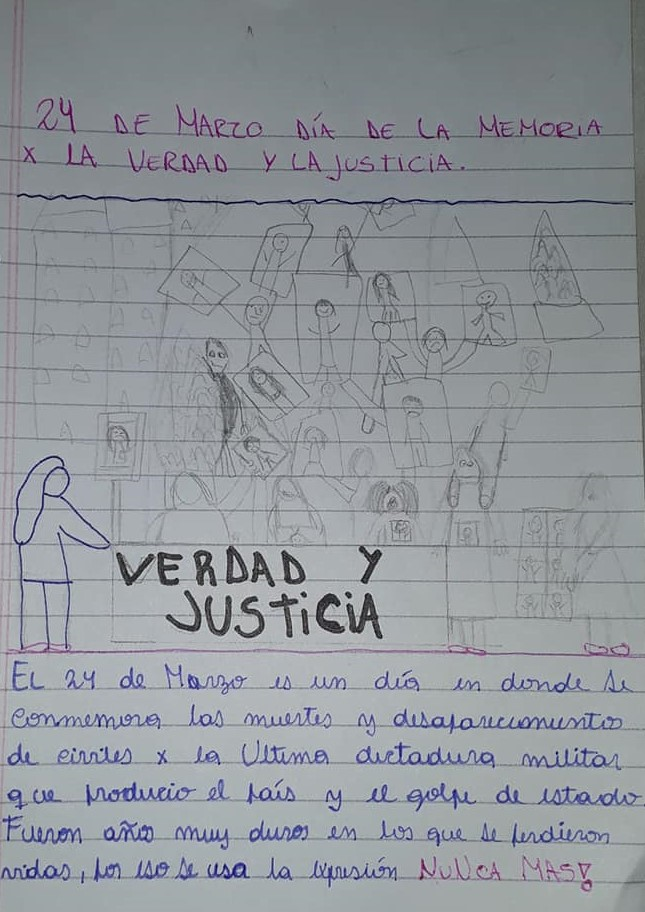 24 DE MARZO DÍA DE LA MEMORIA
X LA VERDAD Y LA JUSTICIA.
VERDAD Y
JUSTICIA
EL 24 de Marzo es un día en donde se
conmemora las muertes y desaparecimientos
de civiles x la Ultima dictadura militar
que producio el país y el golpe de estado.
Fueron años muy duros en los que se perdieron
vidas, por eso se usa la expresión NUNCA MAS!